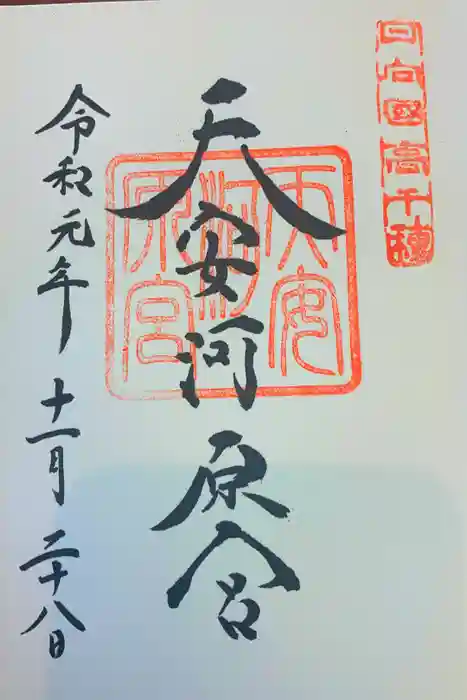 日向國高千穗
天安河原宮
天安河原宮
令和元年 十一月 二十八日